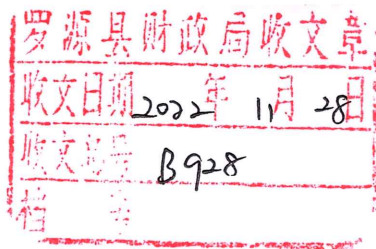 罗源县财政局收文章
收文日期 2022年 11月 28日
收文编号 B928
档 号